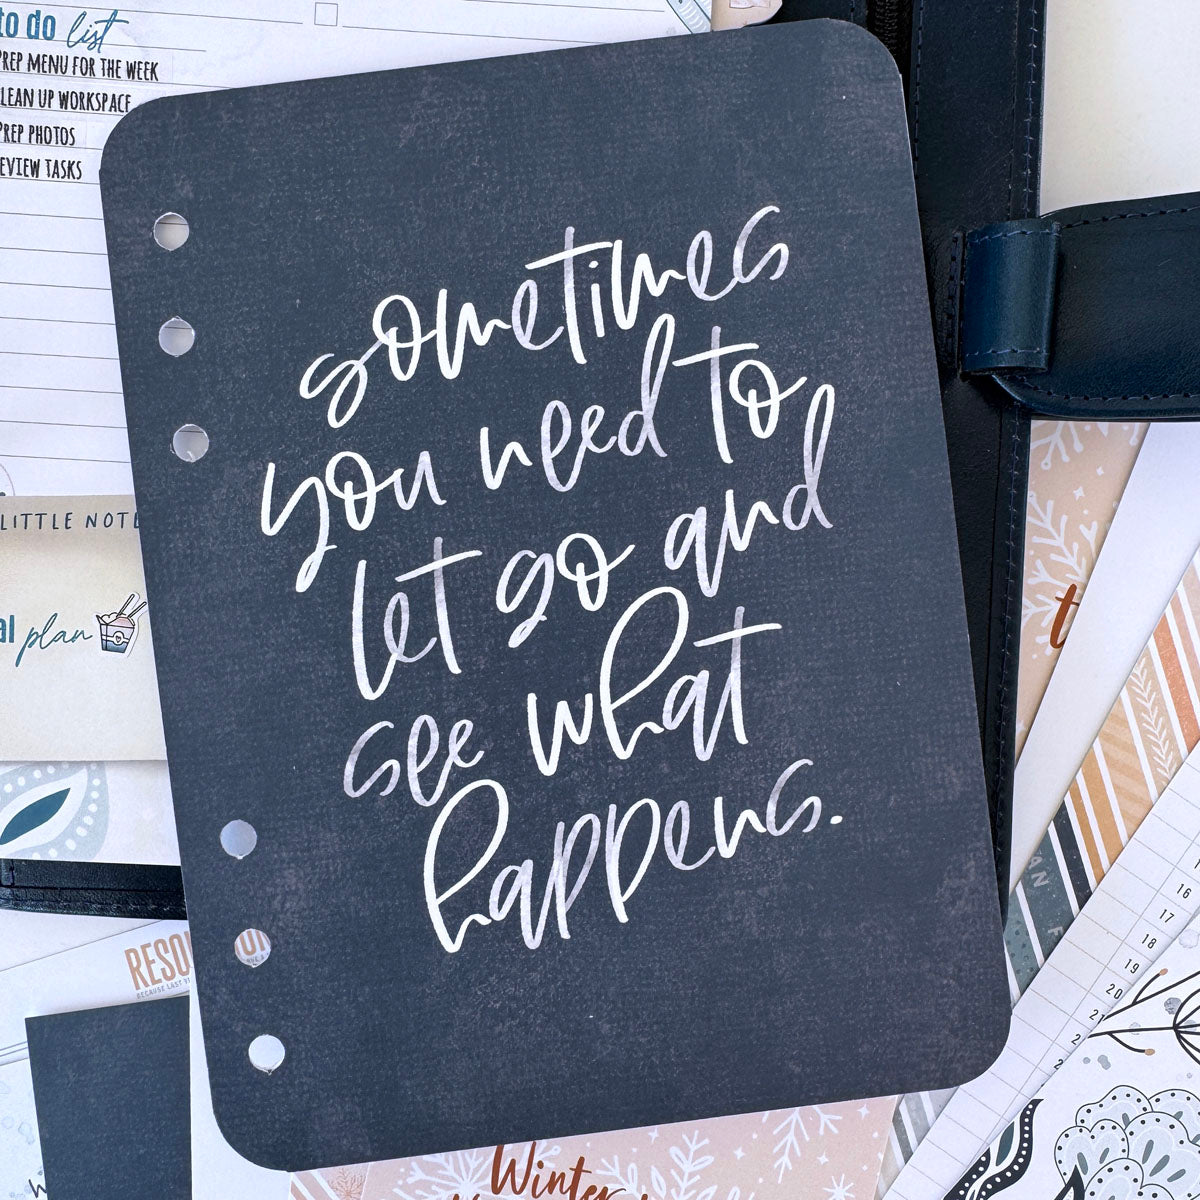 to do list
PREP MENU FOR THE WEEK
LEAN UP WORKSPACE
PREP PHOTOS
EVIEW TASKS
sometimes
you need to
let go and
see what
happens.
LITTLE NOTE
al plan
RESOL
BECAUSE LAST
Winter
16
17
18
19
20
21